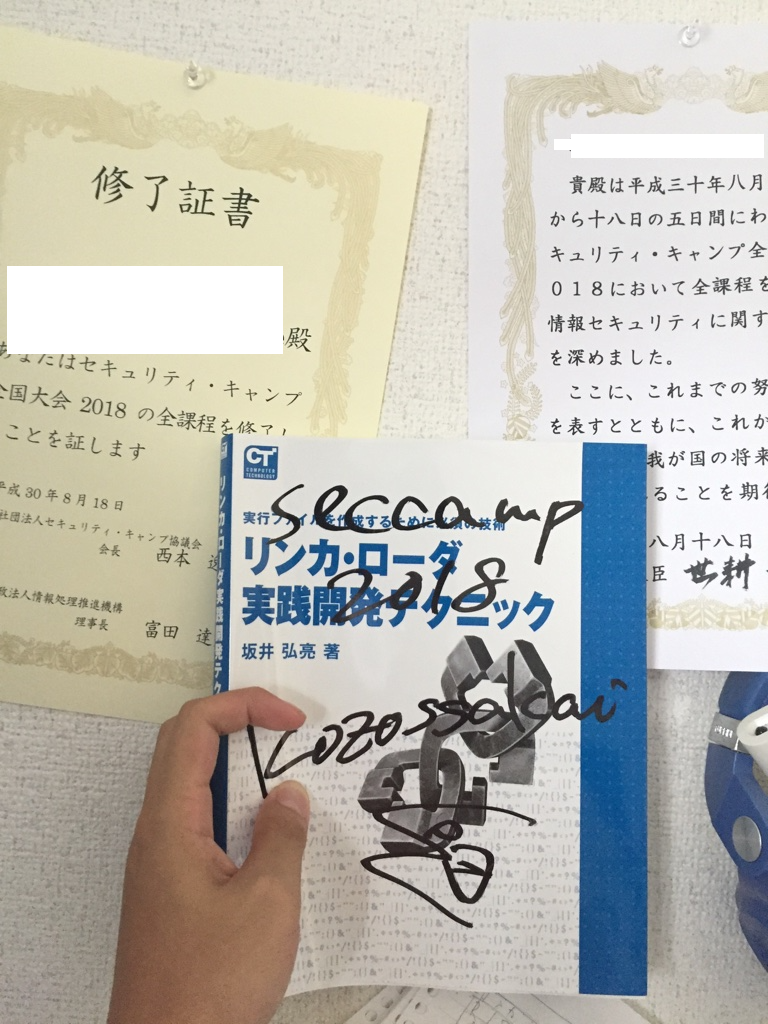 修了証書
殿
あなたはセキュリティ・キャンプ
全国大会 2018 の全課程を修了し
ことを証します
平成 30 年 8 月 18 日
社団法人セキュリティ・キャンプ協議会
会長 西本
政法人情報処理推進機構
理事長 富田 達
貴殿は平成三十年八月
から十八日の五日間にわ
キュリティ・キャンプ全
018において全課程を
情報セキュリティに関す
を深めました。
ここに、これまでの努
を表すとともに、これか
我が国の将来
ることを期待
八月十八日
臣 世耕
CT
COMPUTER
TECHNOLOGY
実行ファイルを作成するために必須の技術
リンカ・ローダ
実践開発テクニック
坂井 弘亮 著
seccamp
2018
kozossakai
リンカ・ローダ実践開発テク